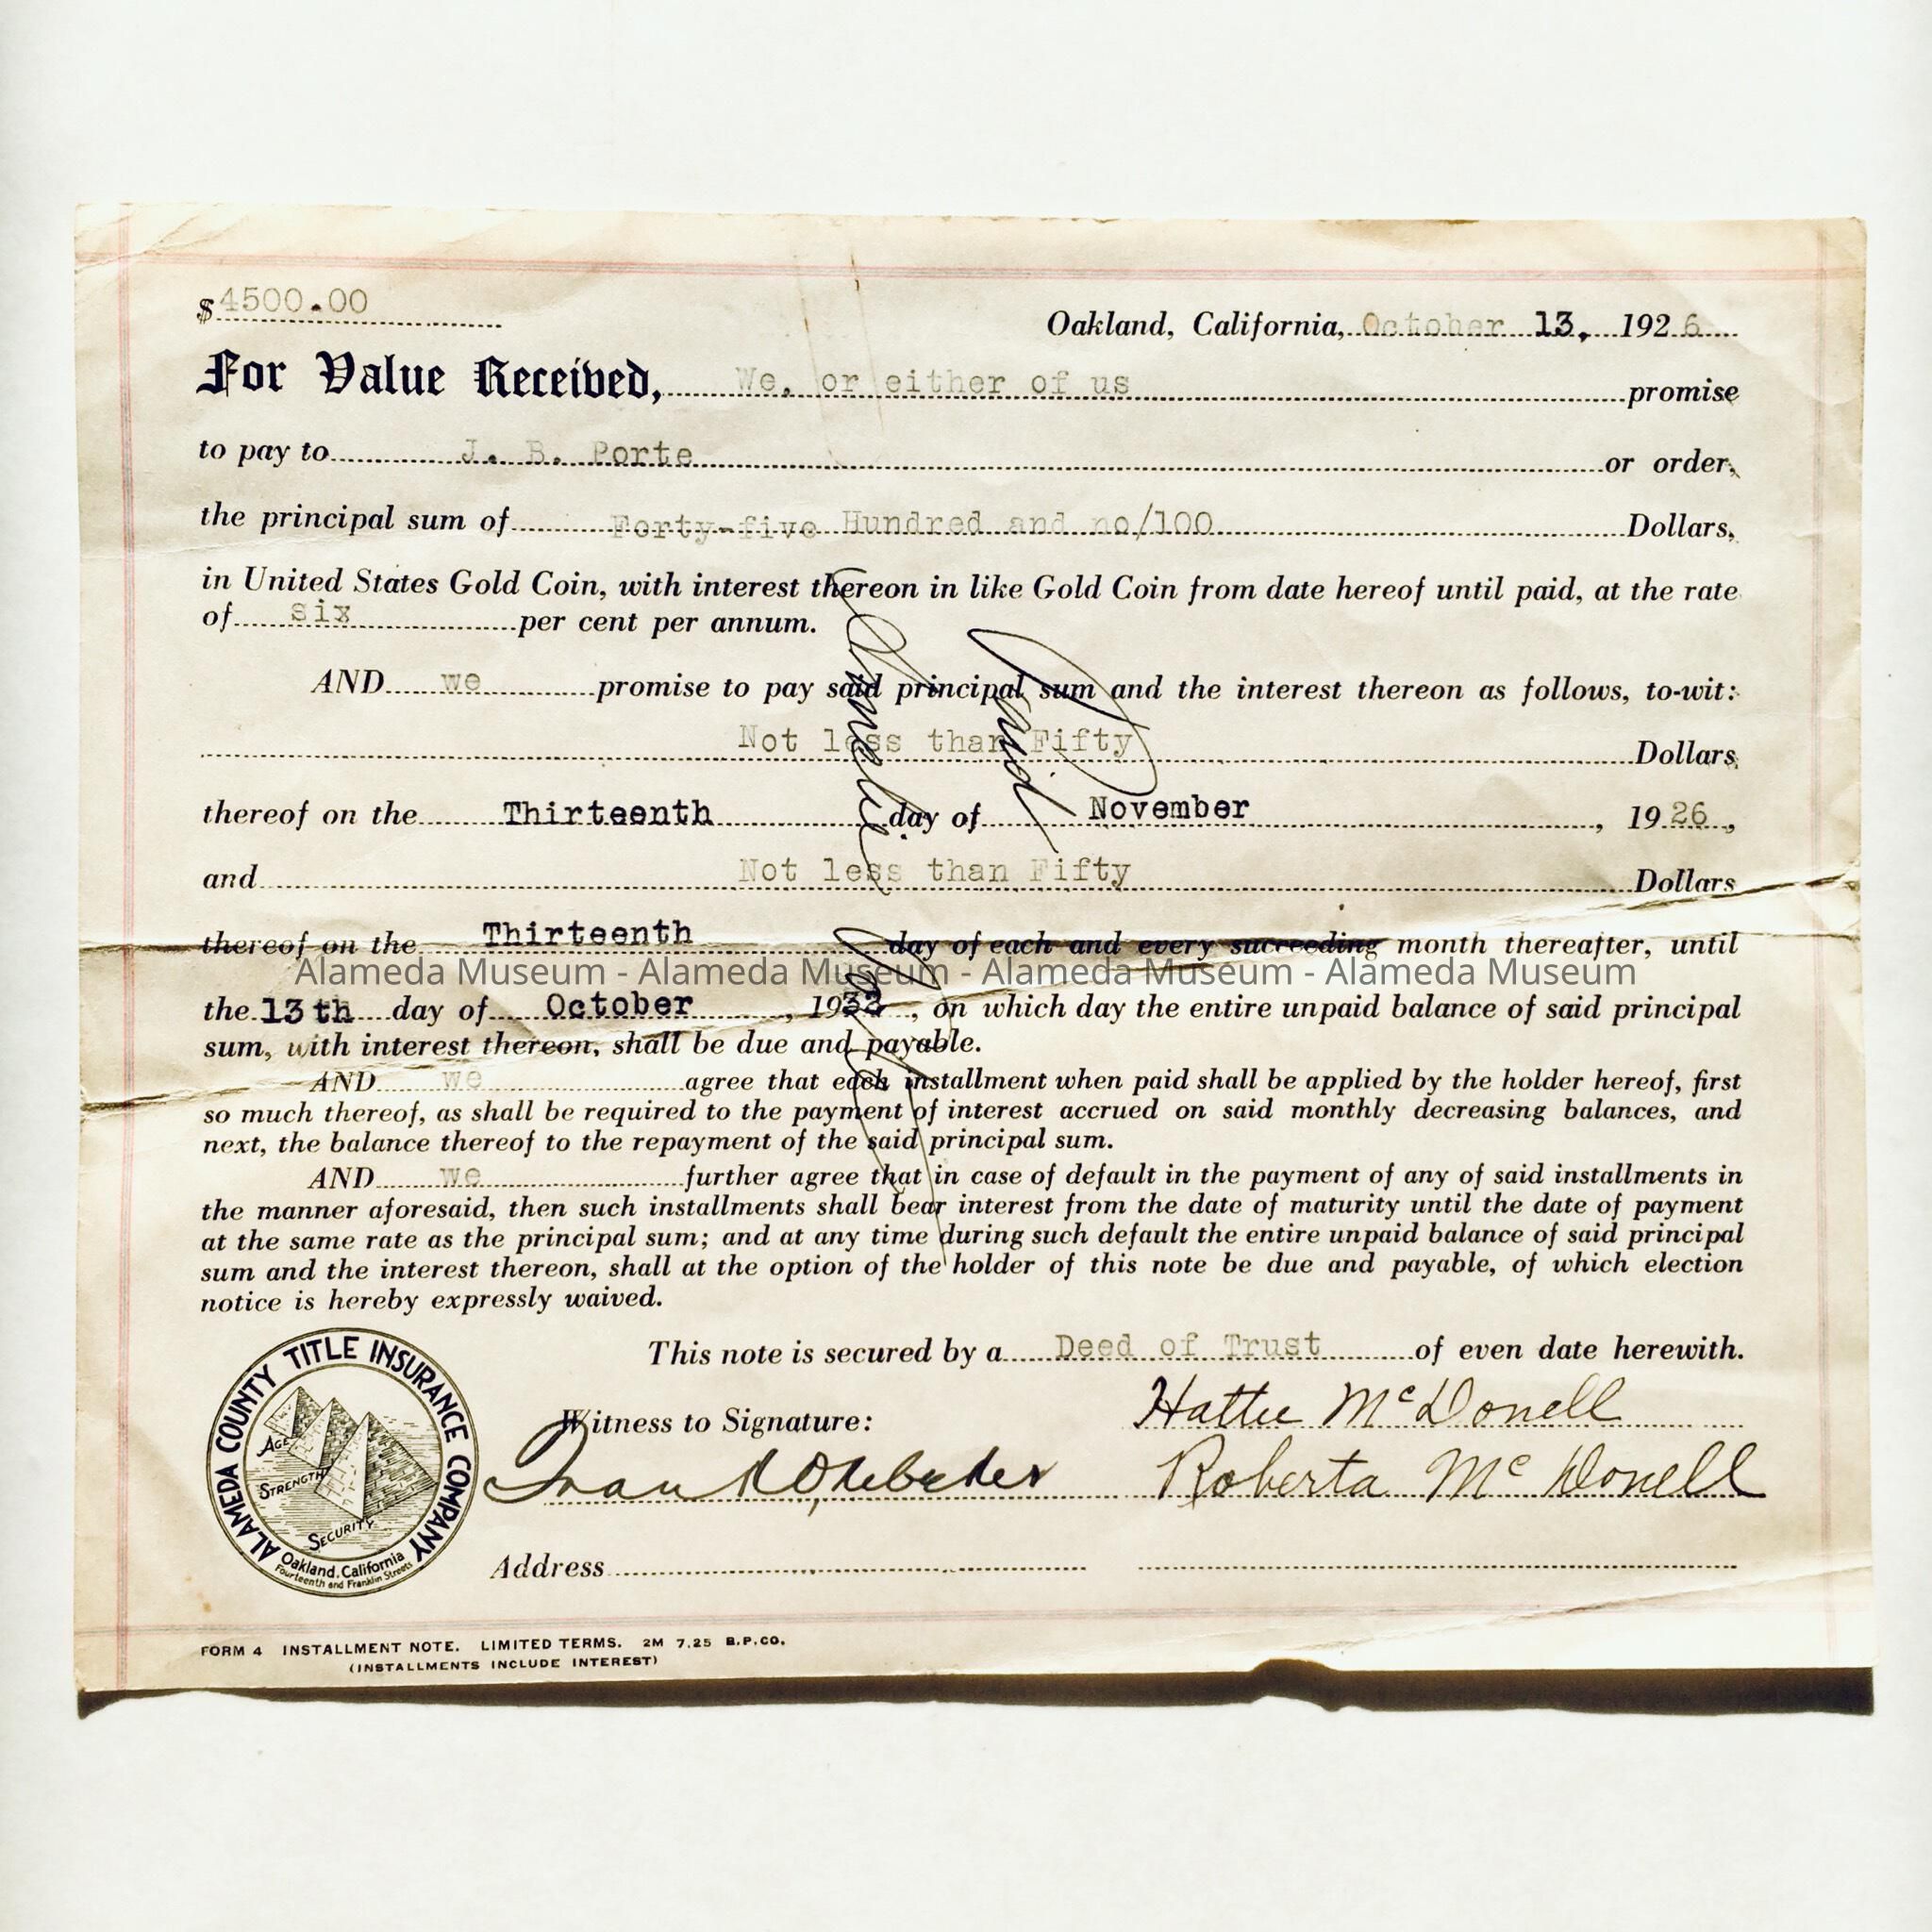 $4500.00
Oakland, California, October 13, 1926
For Value Received, We, or either of us promise
to pay to J. B. Porte or order,
the principal sum of Forty-five Hundred and no/100 Dollars,
in United States Gold Coin, with interest thereon in like Gold Coin from date hereof until paid, at the rate
of six per cent per annum.
AND we promise to pay said principal sum and the interest thereon as follows, to-wit:
Not less than Fifty Dollars
thereof on the Thirteenth day of November, 1926,
and Not less than Fifty Dollars
thereof on the Thirteenth day of each and every succeeding month thereafter, until
Alameda Museum - Alameda Museum - Alameda Museum - Alameda Museum
the 13th day of October, 1932, on which day the entire unpaid balance of said principal
sum, with interest thereon, shall be due and payable.
AND we agree that each installment when paid shall be applied by the holder hereof, first
so much thereof, as shall be required to the payment of interest accrued on said monthly decreasing balances, and
next, the balance thereof to the repayment of the said principal sum.
AND we further agree that in case of default in the payment of any of said installments in
the manner aforesaid, then such installments shall bear interest from the date of maturity until the date of payment
at the same rate as the principal sum; and at any time during such default the entire unpaid balance of said principal
sum and the interest thereon, shall at the option of the holder of this note be due and payable, of which election
notice is hereby expressly waived.
This note is secured by a Deed of Trust of even date herewith.
Paid
Witness to Signature:
Hattie McDonell
Roberta McDonell
Address
ALAMEDA COUNTY TITLE INSURANCE COMPANY
AGE
STRENGTH
SECURITY
Oakland, California
Fourteenth and Franklin Streets
FORM 4 INSTALLMENT NOTE. LIMITED TERMS. 2M 7.25 B.P.CO.
(INSTALLMENTS INCLUDE INTEREST)